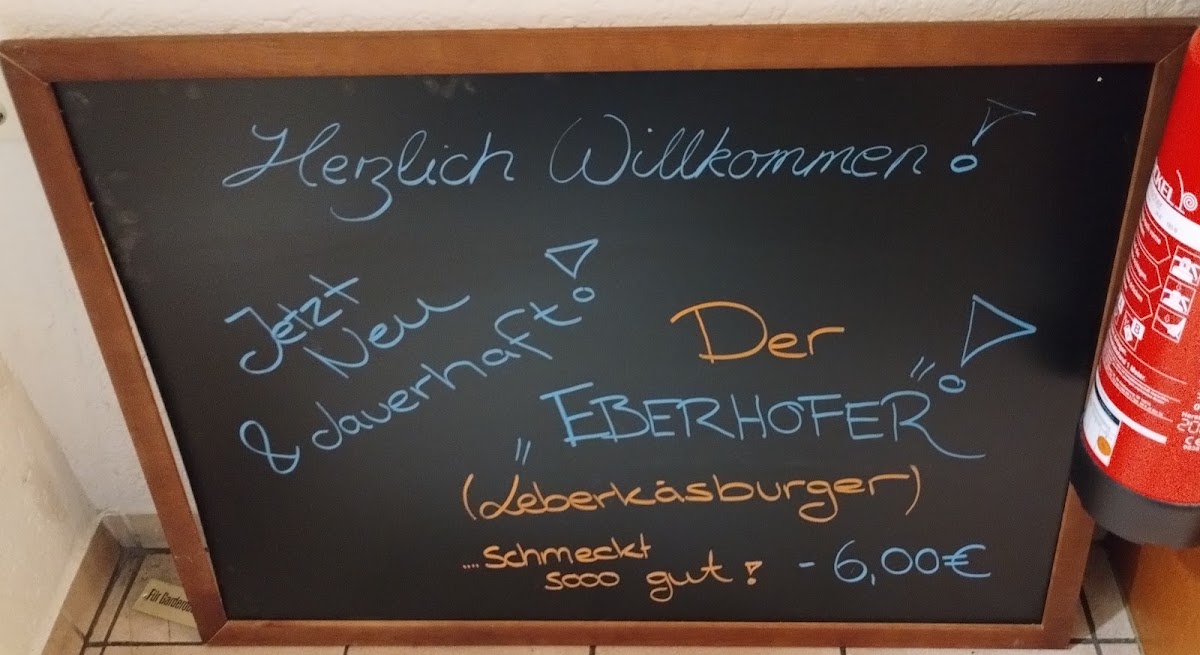 Herzlich Willkommen!
Jetzt
Neu
& dauerhaft!
Der
„EBERHOFER"!
(Leberkäsburger)
....schmeckt
sooo gut! - 6,00€
Für Garderobe